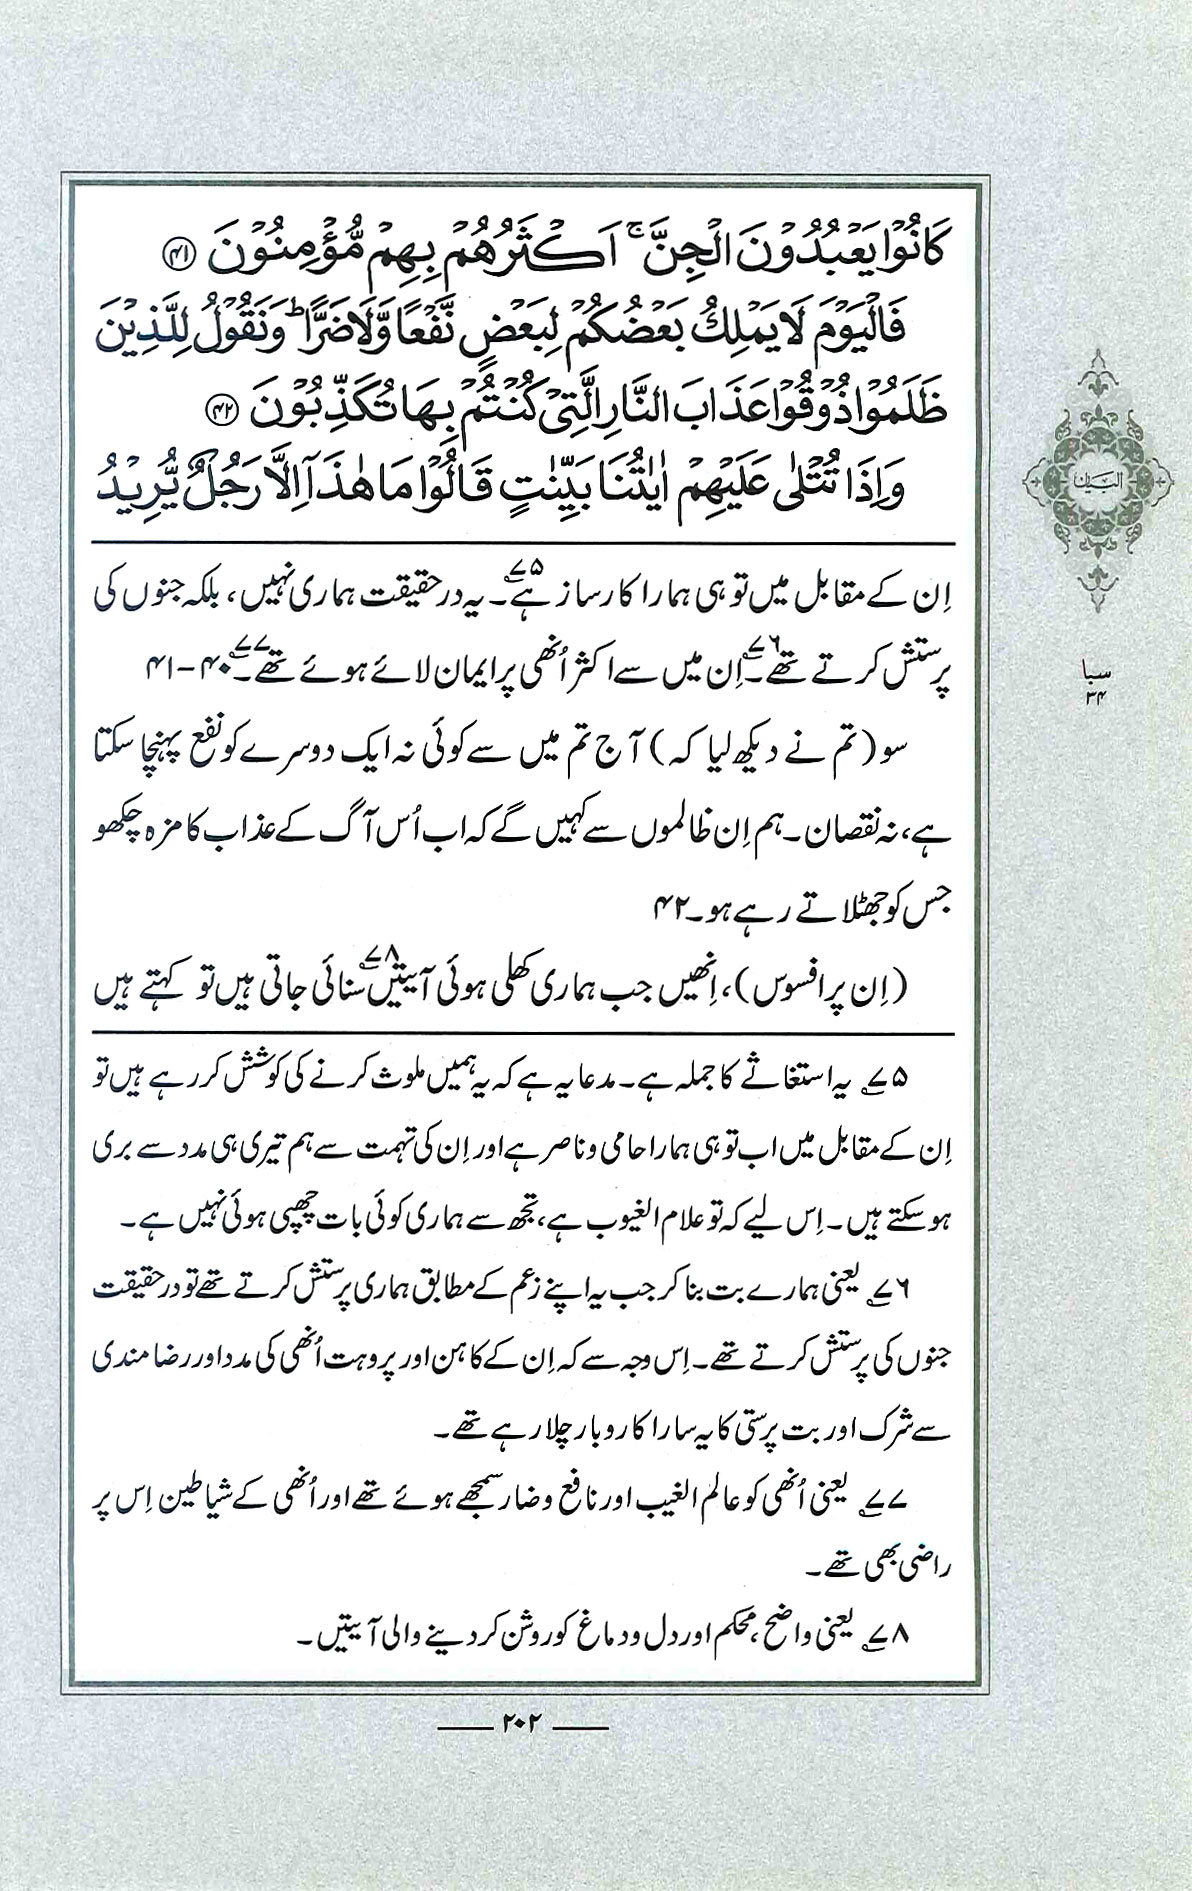 كَانُوْا يَعْبُدُوْنَ الْجِنَّ ۚ اَكْثَرُهُمْ بِهِمْ مُّؤْمِنُوْنَ ﴿۴۱﴾
فَالْيَوْمَ لَا يَمْلِكُ بَعْضُكُمْ لِبَعْضٍ نَّفْعًا وَّلَا ضَرًّا ؕ وَنَقُوْلُ لِلَّذِيْنَ
ظَلَمُوْا ذُوْقُوْا عَذَابَ النَّارِ الَّتِيْ كُنْتُمْ بِهَا تُكَذِّبُوْنَ ﴿۴۲﴾
وَاِذَا تُتْلٰى عَلَيْهِمْ اٰيٰتُنَا بَيِّنٰتٍ قَالُوْا مَا هٰذَآ اِلَّا رَجُلٌ يُّرِيْدُ
اِن کے مقابل میں تو ہی ہمارا کارساز ہے۷۵۔ یہ درحقیقت ہماری نہیں، بلکہ جنوں کی
پرستش کرتے تھے۷۶۔ اِن میں سے اکثر اُنھی پر ایمان لائے ہوئے تھے۷۷۔ ۴۰-۴۱
سو (تم نے دیکھ لیا کہ) آج تم میں سے کوئی نہ ایک دوسرے کو نفع پہنچا سکتا
ہے، نہ نقصان۔ ہم اِن ظالموں سے کہیں گے کہ اب اُس آگ کے عذاب کا مزہ چکھو
جس کو جھٹلاتے رہے ہو۔ ۴۲
(اِن پر افسوس)، اِنھیں جب ہماری کھلی ہوئی آیتیں۷۸ سنائی جاتی ہیں تو کہتے ہیں
۷۵؂ یہ استغاثے کا جملہ ہے۔ مدعا یہ ہے کہ یہ ہمیں ملوث کرنے کی کوشش کر رہے ہیں تو
اِن کے مقابل میں اب تو ہی ہمارا حامی و ناصر ہے اور اِن کی تہمت سے ہم تیری ہی مدد سے بری
ہو سکتے ہیں۔ اِس لیے کہ تو علام الغیوب ہے، تجھ سے ہماری کوئی بات چھپی ہوئی نہیں ہے۔
۷۶؂ یعنی ہمارے بت بنا کر جب یہ اپنے زعم کے مطابق ہماری پرستش کرتے تھے تو درحقیقت
جنوں کی پرستش کرتے تھے۔ اِس وجہ سے کہ اِن کے کاہن اور پروہت اُنھی کی مدد اور رضامندی
سے شرک اور بت پرستی کا یہ سارا کاروبار چلا رہے تھے۔
۷۷؂ یعنی اُنھی کو عالم الغیب اور نافع و ضار سمجھے ہوئے تھے اور اُنھی کے شیاطین اِس پر
راضی بھی تھے۔
۷۸؂ یعنی واضح، محکم اور دل و دماغ کو روشن کر دینے والی آیتیں۔
البیان
سبا
۳۴
۲۰۲